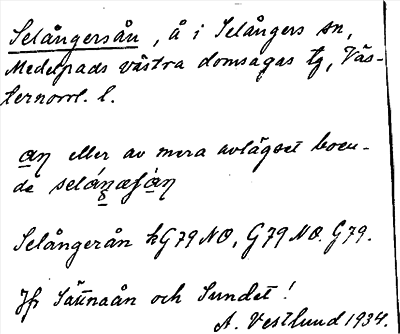 Selångersån, å i Selångers sn,
Medelpads västra domsagas tg, Väs-
ternorrl. l.
an eller av mera avlägset boen-
de
Selångerån kG79NO, G79NO. G79.
Jfr Sännaån och Sundet!
A. Vestlund 1934.